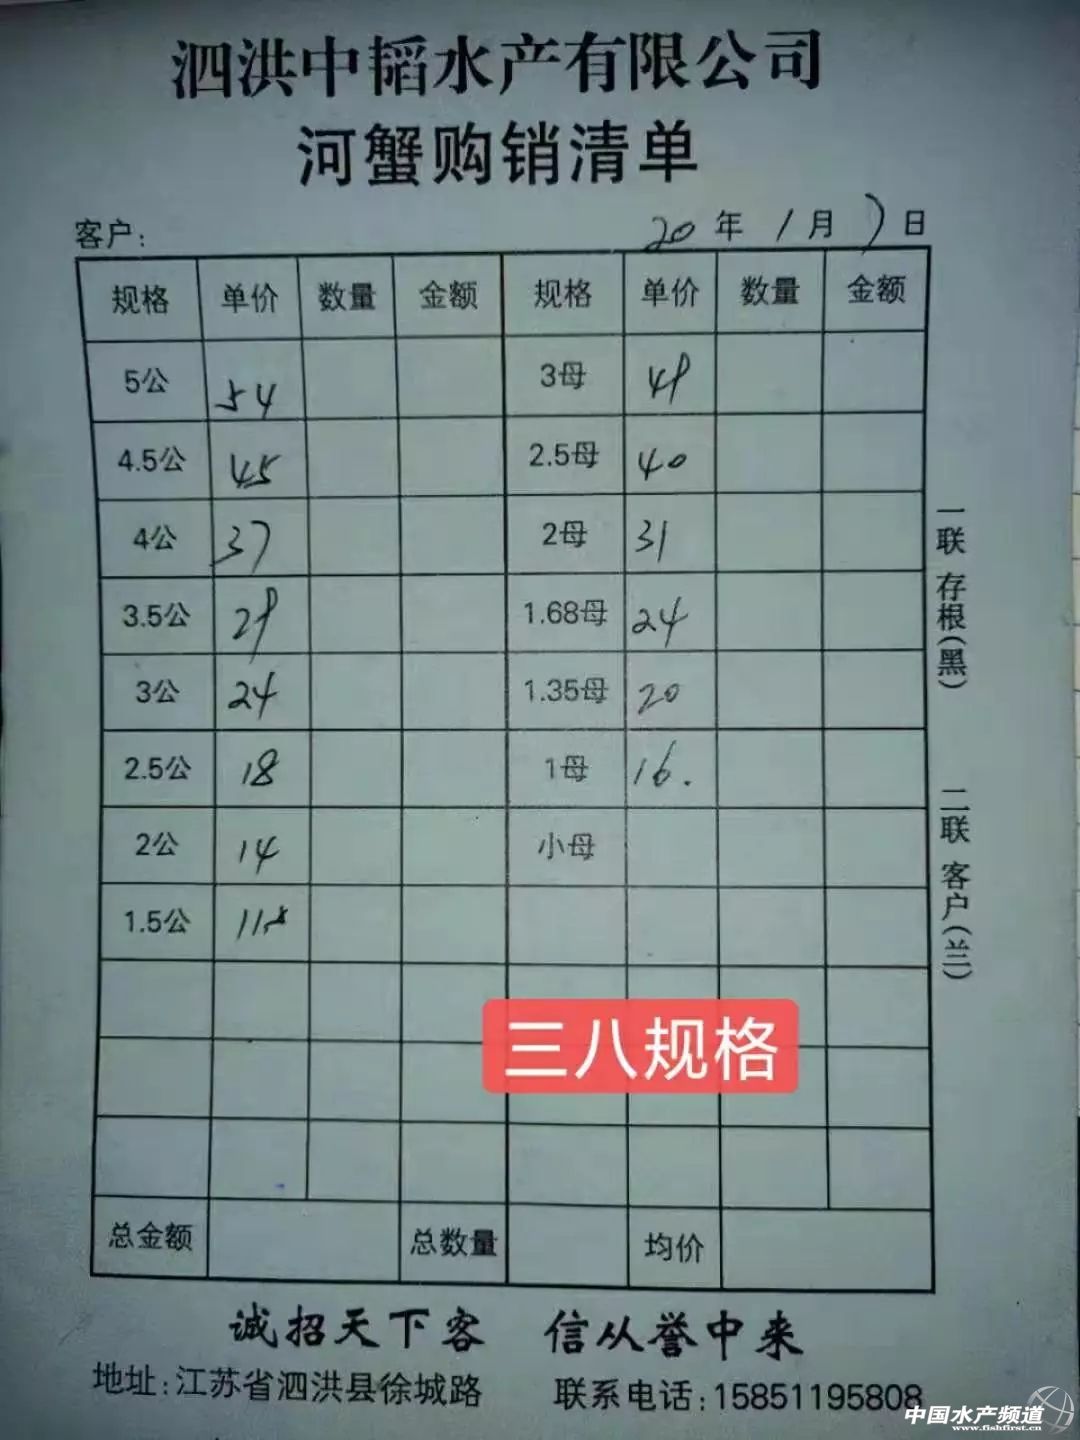 泗洪中韬水产有限公司
河蟹购销清单
客户: 20年1月7日
规格 单价 数量 金额 规格 单价 数量 金额
5公 54 3母 48
4.5公 45 2.5母 40
4公 37 2母 31
3.5公 28 1.68母 24
3公 24 1.35母 20
2.5公 18 1母 16.
2公 14 小母
1.5公
三八规格
总金额 总数量 均价
一联 存根(黑)
二联 客户(兰)
诚招天下客 信从誉中来
地址:江苏省泗洪县徐城路 联系电话:15851195808
中国水产频道
www.fishfirst.cn